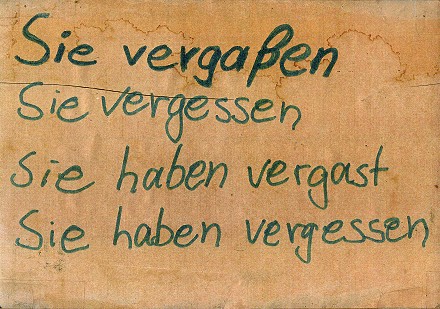 Sie vergaßen
Sie vergessen
Sie haben vergast
Sie haben vergessen